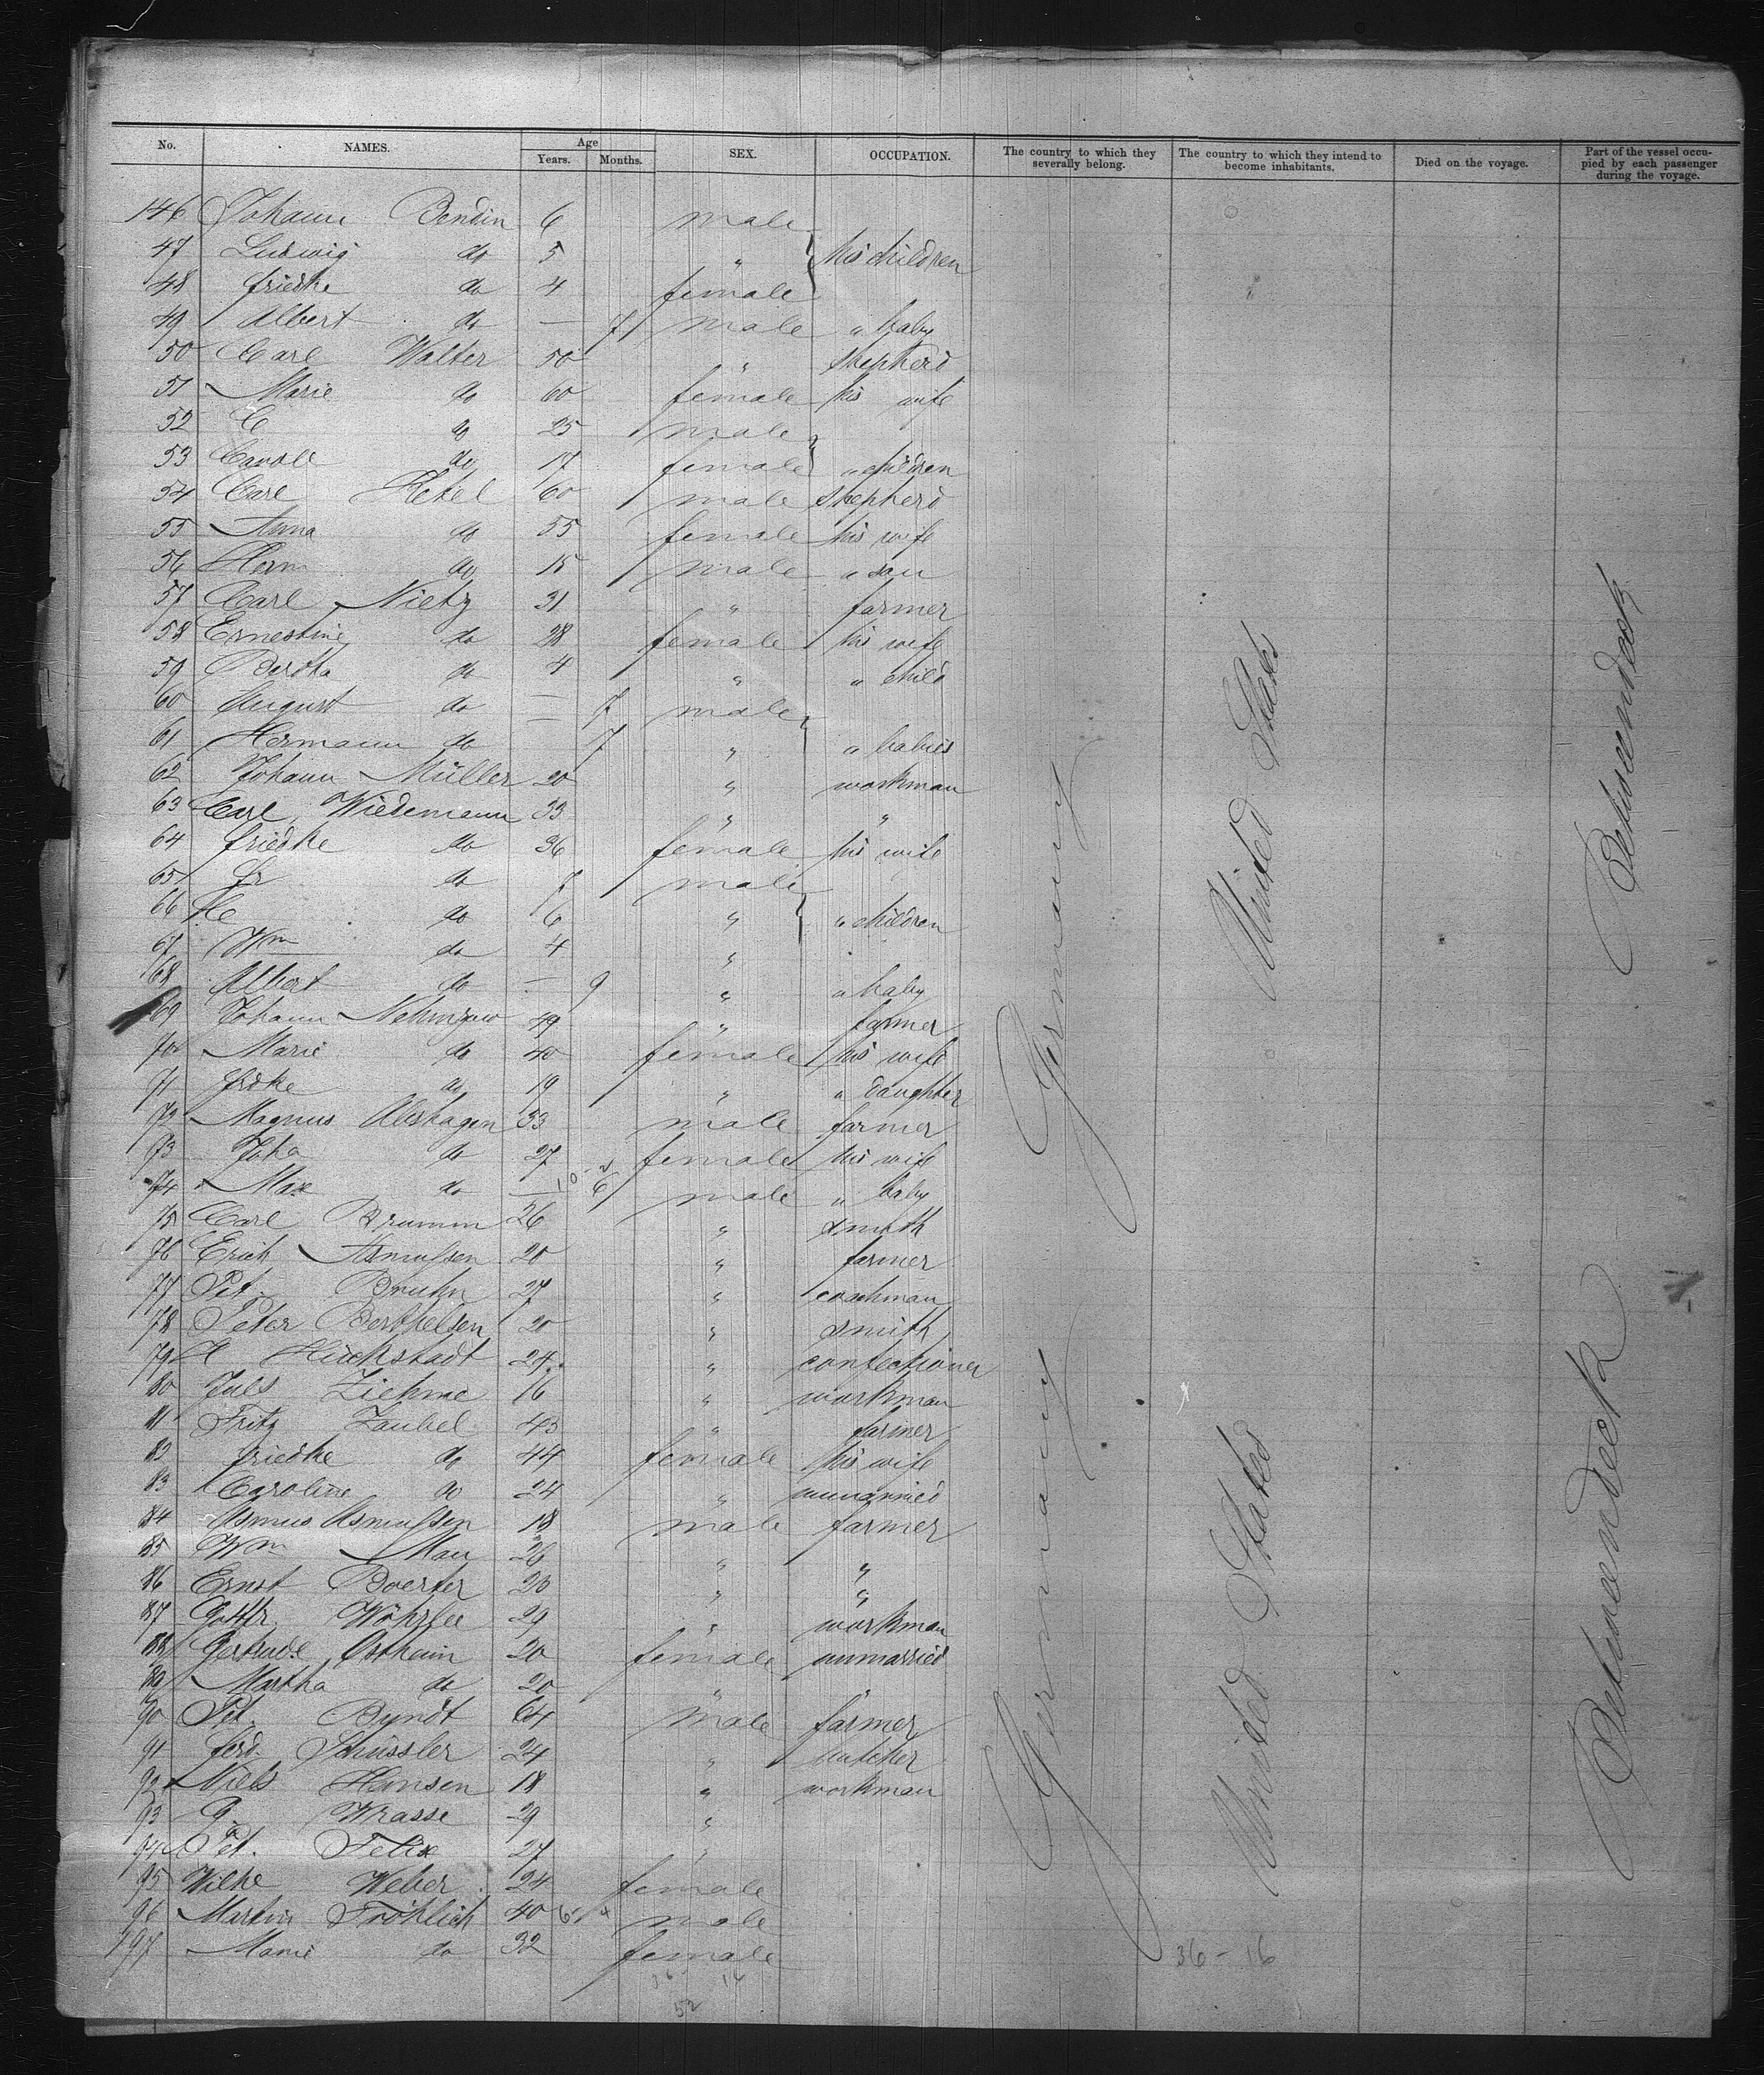 No. NAMES. Age Years. Months. SEX. OCCUPATION. The country to which they severally belong. The country to which they intend to become inhabitants. Died on the voyage. Part of the vessel occupied by each passenger during the voyage.
146 Johann Bendin 6 male
47 Ludwig do 5 " his children
48 friedke do 4 female
49 Albert do — 7 male " baby
50 Carl Walter 50 " shepherd
51 Marie do 60 female his wife
52 C do 25 male
53 Caroll do 17 female " children
54 Carl Ketel 60 male shepherd
55 Anna do 55 female his wife
56 Herm do 15 male " son
57 Carl Nietz 31 " farmer
58 Ernestine do 28 female his wife
59 Bertha do 4 " " child
60 August do — 7 male
61 Hermann do — 7 " " babies
62 Johann Müller 20 " workman
63 Carl Wiedemann 33 " "
64 friedke do 36 female his wife
65 fr do 7 male
66 C do 6 " " children
67 Wm do 4 "
68 Albert do — 9 " " baby
69 Johann 49 " farmer
70 Marie do 40 female his wife
71 frdke do 19 " " daughter
72 Magnus Abshagen 33 male farmer
73 Joha do 27 female his wife
74 Max do — 6 male " baby
75 Carl Brumm 26 " smith
76 Erich Asmussen 20 " farmer
77 Pet. Bruhn 27 " coachman
78 Peter Berthelsen 20 " smith
79 H Hückstadt 24 " confectioner
80 Juls Ziehme 16 " workman
81 Fritz Zaubel 43 " farmer
82 friedke do 44 female his wife
83 Caroline do 24 " unmarried
84 Asmus Asmussen 18 male farmer
85 Wm Mau 26 " "
86 Ernst Boerter 20 " "
87 Gottfr. Wöhrlee 29 " workman
88 Gertrude Ostheim 20 female unmarried
89 Martha do 20 " "
90 Pet. Byndt 64 male farmer
91 ferd. Schüssler 24 " butcher
92 Niels Hansen 18 " workman
93 G. Wrasse 29 "
94 Pet. Felix 27 "
95 Wilke Weber 24 female
96 Martin Fröhlich 40 male
197 Marie do 32 female
Germany United States Betweendeck
Germany United States Betweendeck
36 - 16
52